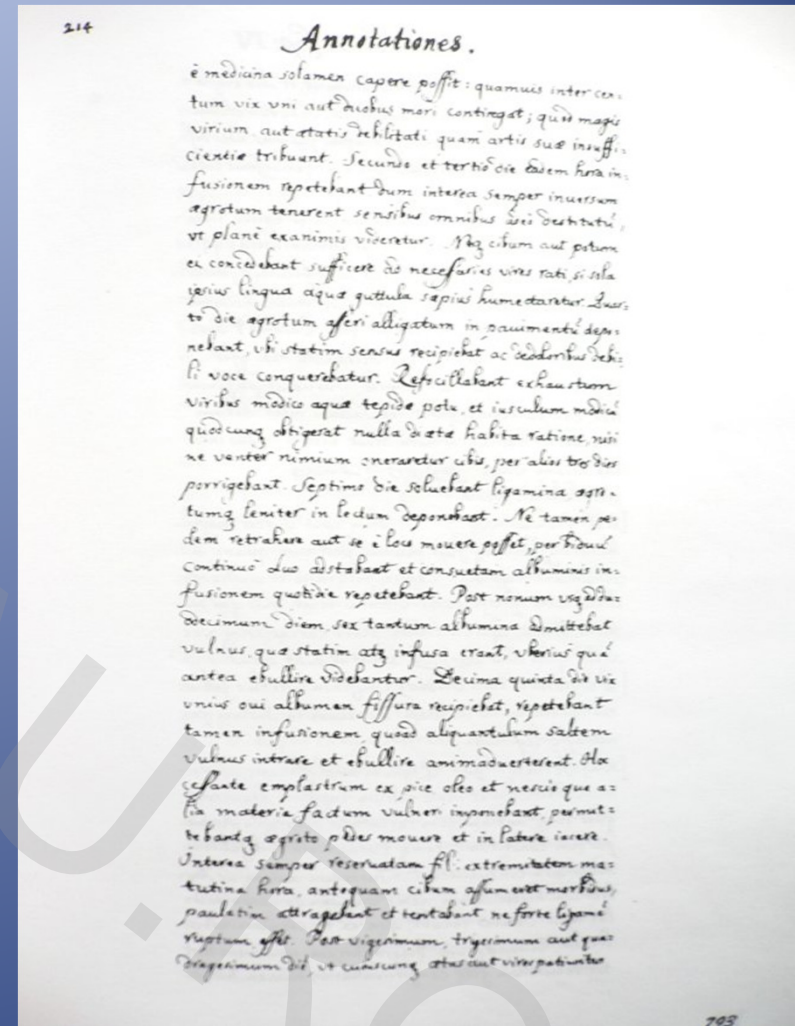 214
Annotationes.
è medicina solamen capere possit: quamuis inter cen=
tum vix vni aut duobus mori contingat; quod magis
virium aut ætatis debilitati quam artis suæ insuffi=
cientiæ tribuunt. Secundo et tertio die eadem hora in=
fusionem repetebant dum interea semper inuersum
ægrotum tenerent sensibus omnibus destitutū,
vt planè exanimis videretur. Neq cibum aut potum
ei concedebant sufficere ad necessarias vires rati, si sola
ipsius lingua aquæ guttula sæpius humectaretur. Quar=
to die ægrotum asseri alligatum in pauimentū depo=
nebant, vbi statim sensus recipiebat ac de doloribus debi=
li voce conquerebatur. Refocillabant exhaustum
viribus modico aquæ tepidæ potu, et iusculum modicū
quodcunq obtigerat nulla diætæ habita ratione, nisi
ne venter nimium oneraretur cibis, per alios tres dies
porrigebant. Septimo die soluebant ligamina ægro=
tumq leniter in lectum deponebant. Ne tamen pe=
dem retrahere aut se è loco mouere posset, per biduū
continuò duo adstabant et consuetam albuminis in=
fusionem quotidie repetebant. Post nonum vsq ad du=
odecimum diem, sex tantum albumina admittebat
vulnus, quæ statim atq infusa erant, vberius quā
antea ebullire videbantur. Decima quinta die vix
vnius oui albumen fissura recipiebat, repetebant
tamen infusionem, quoad aliquantulum saltem
vulnus intrare et ebullire animaduerterent. Hoc
cessante emplastrum ex pice oleo et nescio quæ a=
lia materia factum vulneri imponebant, permit=
tebantq ægroto pedes mouere et in latere iacere.
Interea semper reseruatam fil: extremitatem ma=
tutina hora, antequam cibum assumeret morbidus,
paulatim attragebant et tentabant ne forte ligamē
ruptum esset. Post vigesimum, trigesimum aut qua=
dragesimum diē, vt cuiuscunq ætas aut vires patiuntur
793